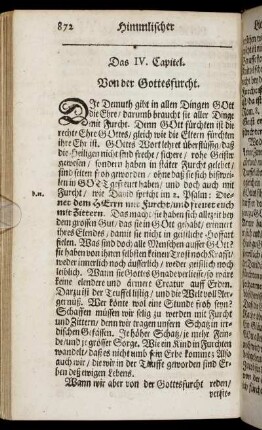 872 Himmlischer
Das IV. Capitel.
Von der Gottesfurcht.
Die Demuth gibt in allen Dingen GOtt
die Ehre/ darumb braucht sie aller Dinge
mit Furcht. Denn GOtt fürchten ist die
rechte Ehre GOttes/ gleich wie die Eltern fürchten
ihre Ehr ist. GOttes Wort lehret überflüssig/ daß
die Heiligen nicht sind freche / sichere / rohe Geister
gewesen / sondern haben in stäter Furcht gelebet/
sind selten froh geworden / ohne daß sie sich bißwei-
len in GOtt gefreuet haben/ und doch auch mit
Furcht / wie David spricht im 2. Psalm: Die-
v.11. net dem HErrn mit Furcht/und freuet euch
mit Zittern. Das macht/ sie haben sich allezeit bey
dem grossen Gut / das sie in GOtt gehabt/ erinnert
ihres Elendes/ damit sie nicht in geistliche Hoffart
fielen. Was sind doch alle Menschen ausser GOtt?
sie haben von ihnen selbsten keinen Trost noch Krafft/
weder innerlich noch äusserlich / weder geistlich noch
leiblich. Wann sie Gottes Gnade verliessen/ so
eine elendere und ärmere Creatur auff Erden.
Darzu ist der Teuffel listig / und die Welt voll Aer-
gernüß. Wer könte wol eine Stunde froh seyn?
Schaffen müssen wir selig zu werden mit Furcht
und Zittern/ denn wir tragen unsern Schatz in ir-
dischen Gefässen. Je höher Schatz/ je mehr Fein-
de/und je grösser Sorge. Wie ein Kind in Furchten
wandelt/ daß es nicht umb sein Erbe komme; Also
auch wir / die wir in der Tauffe geworden sind Er-
ben deß ewigen Lebens.
Wann wir aber von der Gottesfurcht reden/